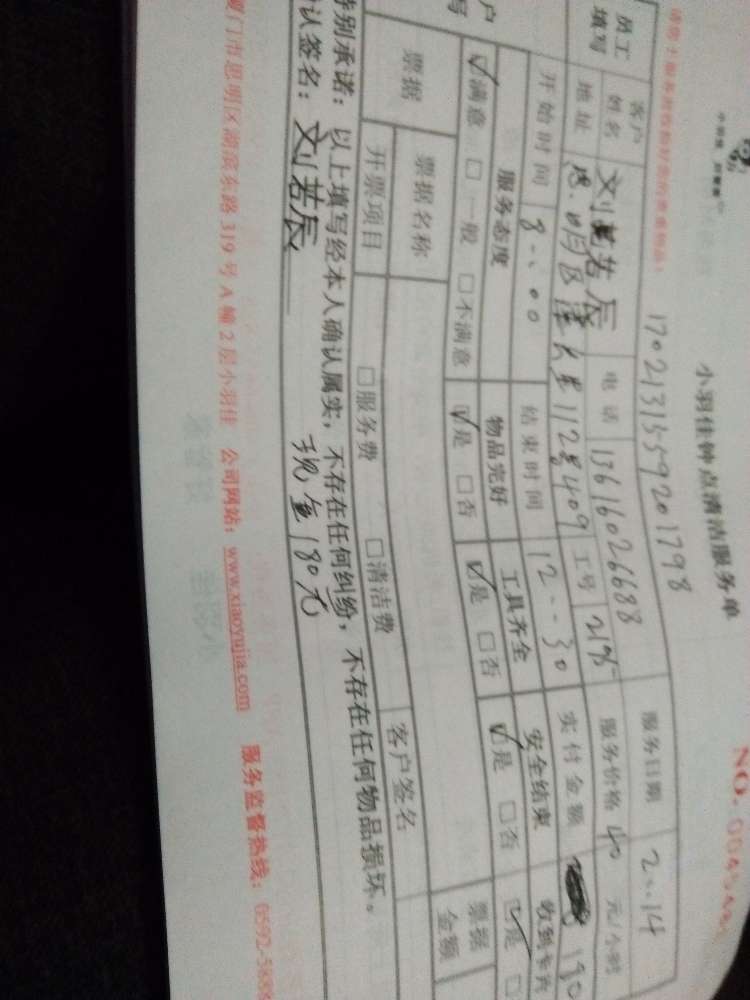 小羽佳钟点清洁服务单
NO.
1702131559201798
员工填写 客户姓名 刘若辰 电话 13616026688 服务日期 2..14
地址 思明区 112号409 工号 服务价格 40 元/小时
开始时间 8..00 结束时间 12..30 实付金额 180
服务态度 物品完好 工具齐全 安全结束 收到卡片
☑满意 □一般 □不满意 ☑是 □否 ☑是 □否 ☑是 □否 ☑是 □
票据 票据名称 客户签名 票据金额
开票项目 □服务费 □清洁费
特别承诺：以上填写经本人确认属实，不存在任何纠纷，不存在任何物品损坏。
认签名：刘若辰 现金180元
厦门市思明区湖滨东路319号A幢2层小羽佳 公司网站：www.xiaoyujia.com 服务监督热线：0592-5888